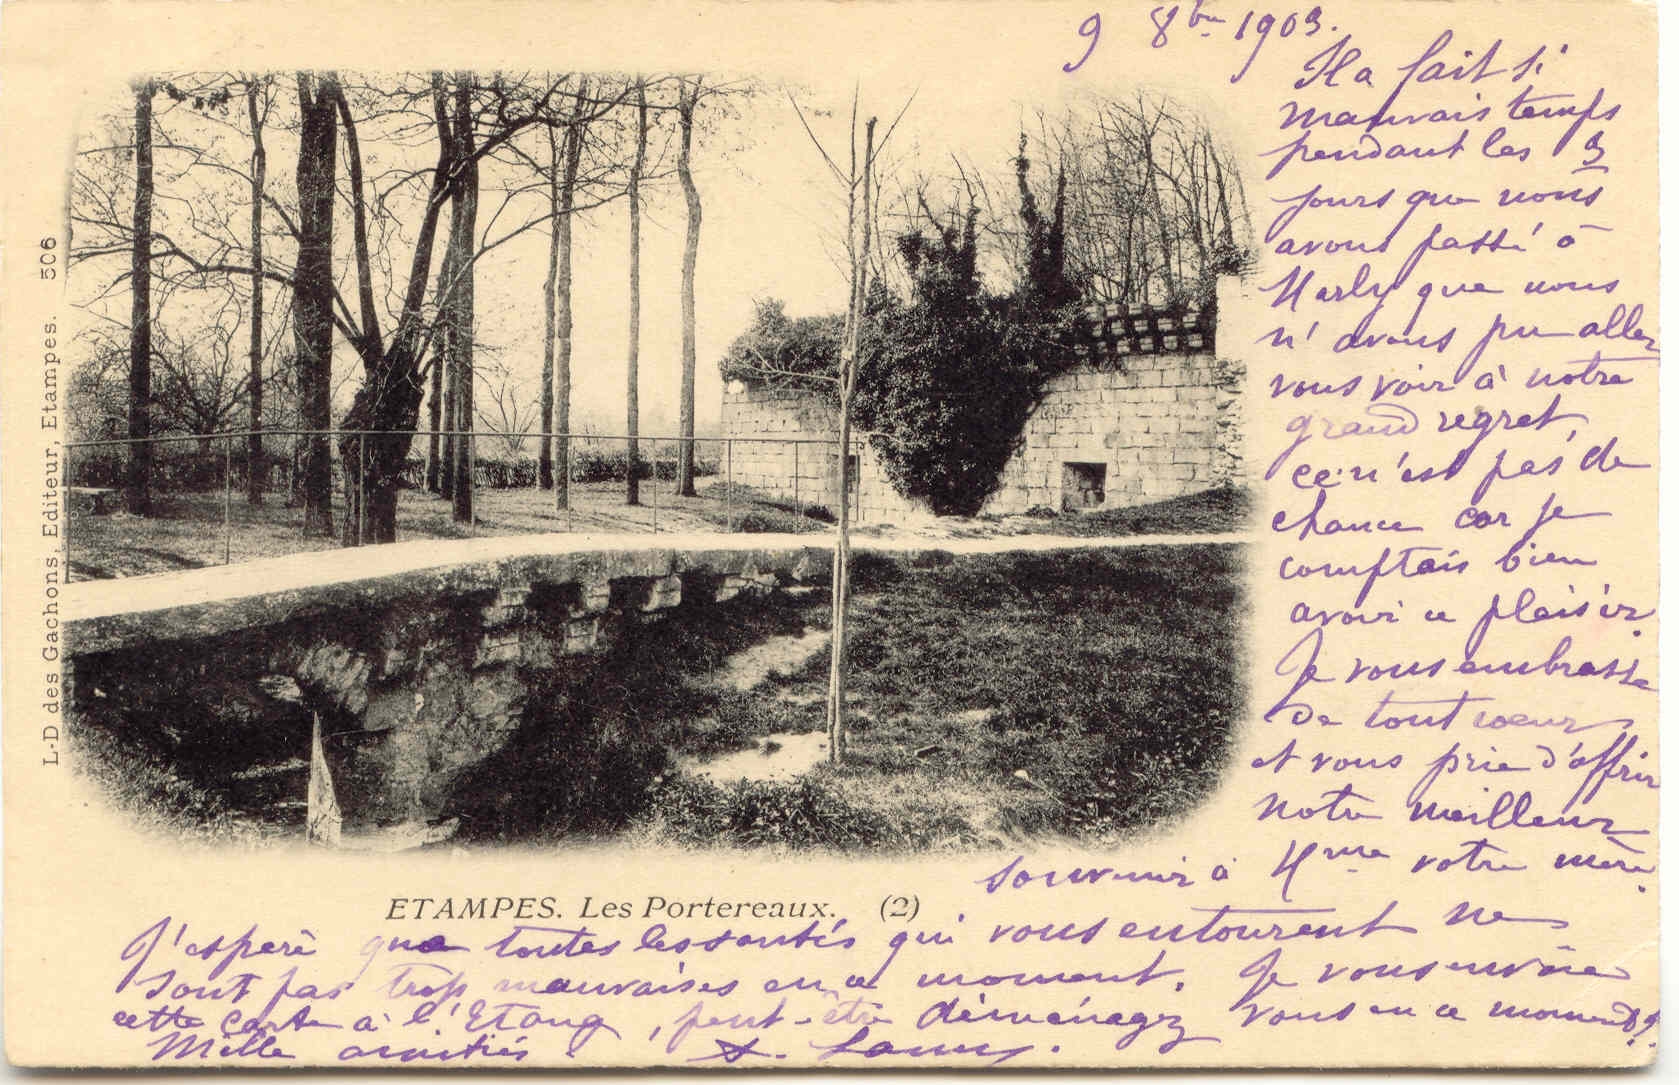 L-D des Gachons, Editeur, Etampes. 506
9 8bre 1903.
Il a fait si
mauvais temps
pendant les 3
jours que nous
avons passé à
Marly que nous
n'avons pu aller
vous voir à notre
grand regret,
ce n'est pas de
chance car je
comptais bien
avoir ce plaisir.
Je vous embrasse
de tout coeur
et vous prie d'offrir
notre meilleur
souvenir à Mme votre mère.
ETAMPES. Les Portereaux. (2)
J'espère que toutes les santés qui vous entourent ne
sont pas trop mauvaises en ce moment. Je vous envoie
cette carte à l'Etang, peut-être déménagez vous en ce moment??
Mille amitiés.